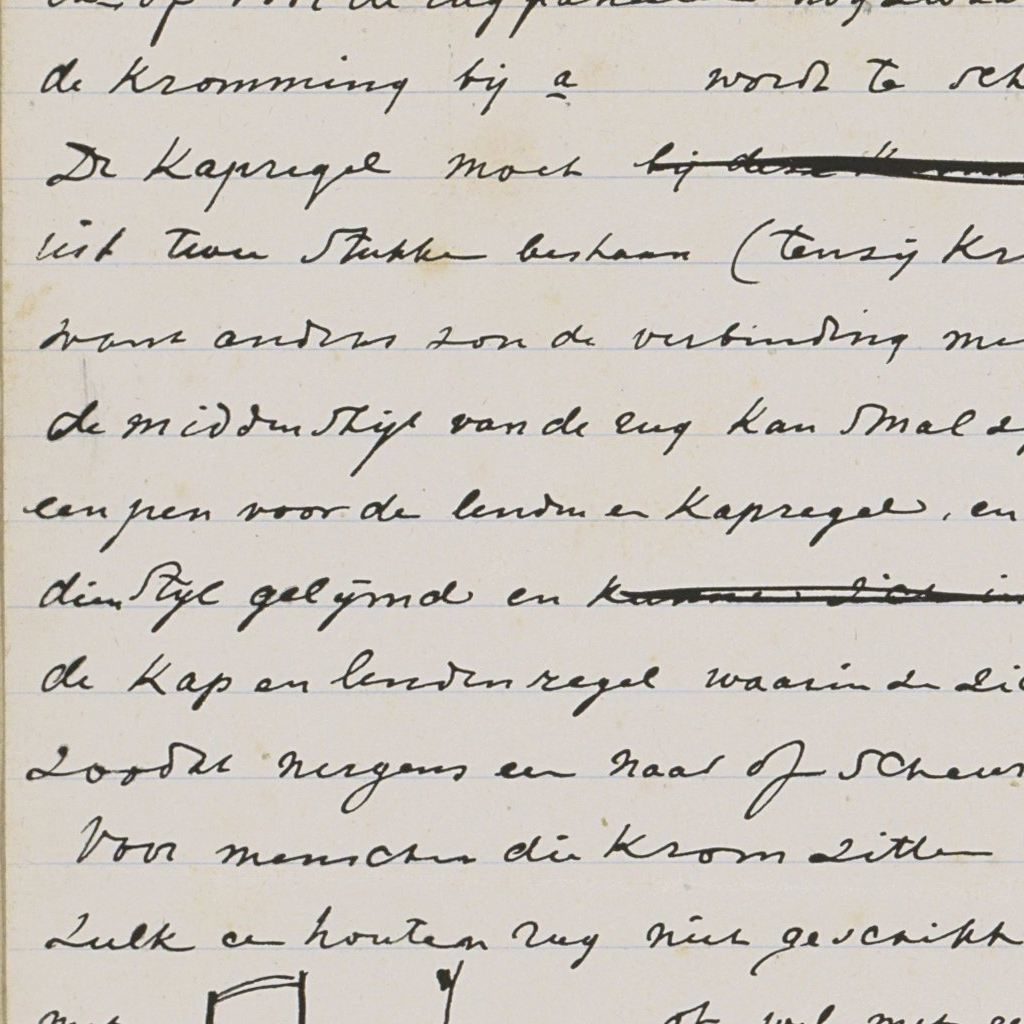 de kromming bij a wordt te sch
De Kapregel moet bij deze
uit twee stukken bestaan (tenzij Kr
want anders zou de verbinding me
de middenstijl van de rug kan smal z
een pen voor de lenden en Kapregel, en
dien stijl gelijmd en kunnen zich in
de Kap en lendenregel waarin ze zic
zoodat nergens een naad of scheur
Voor menschen die Krom zitten
zulk een houten rug niet geschikt
met of wel met